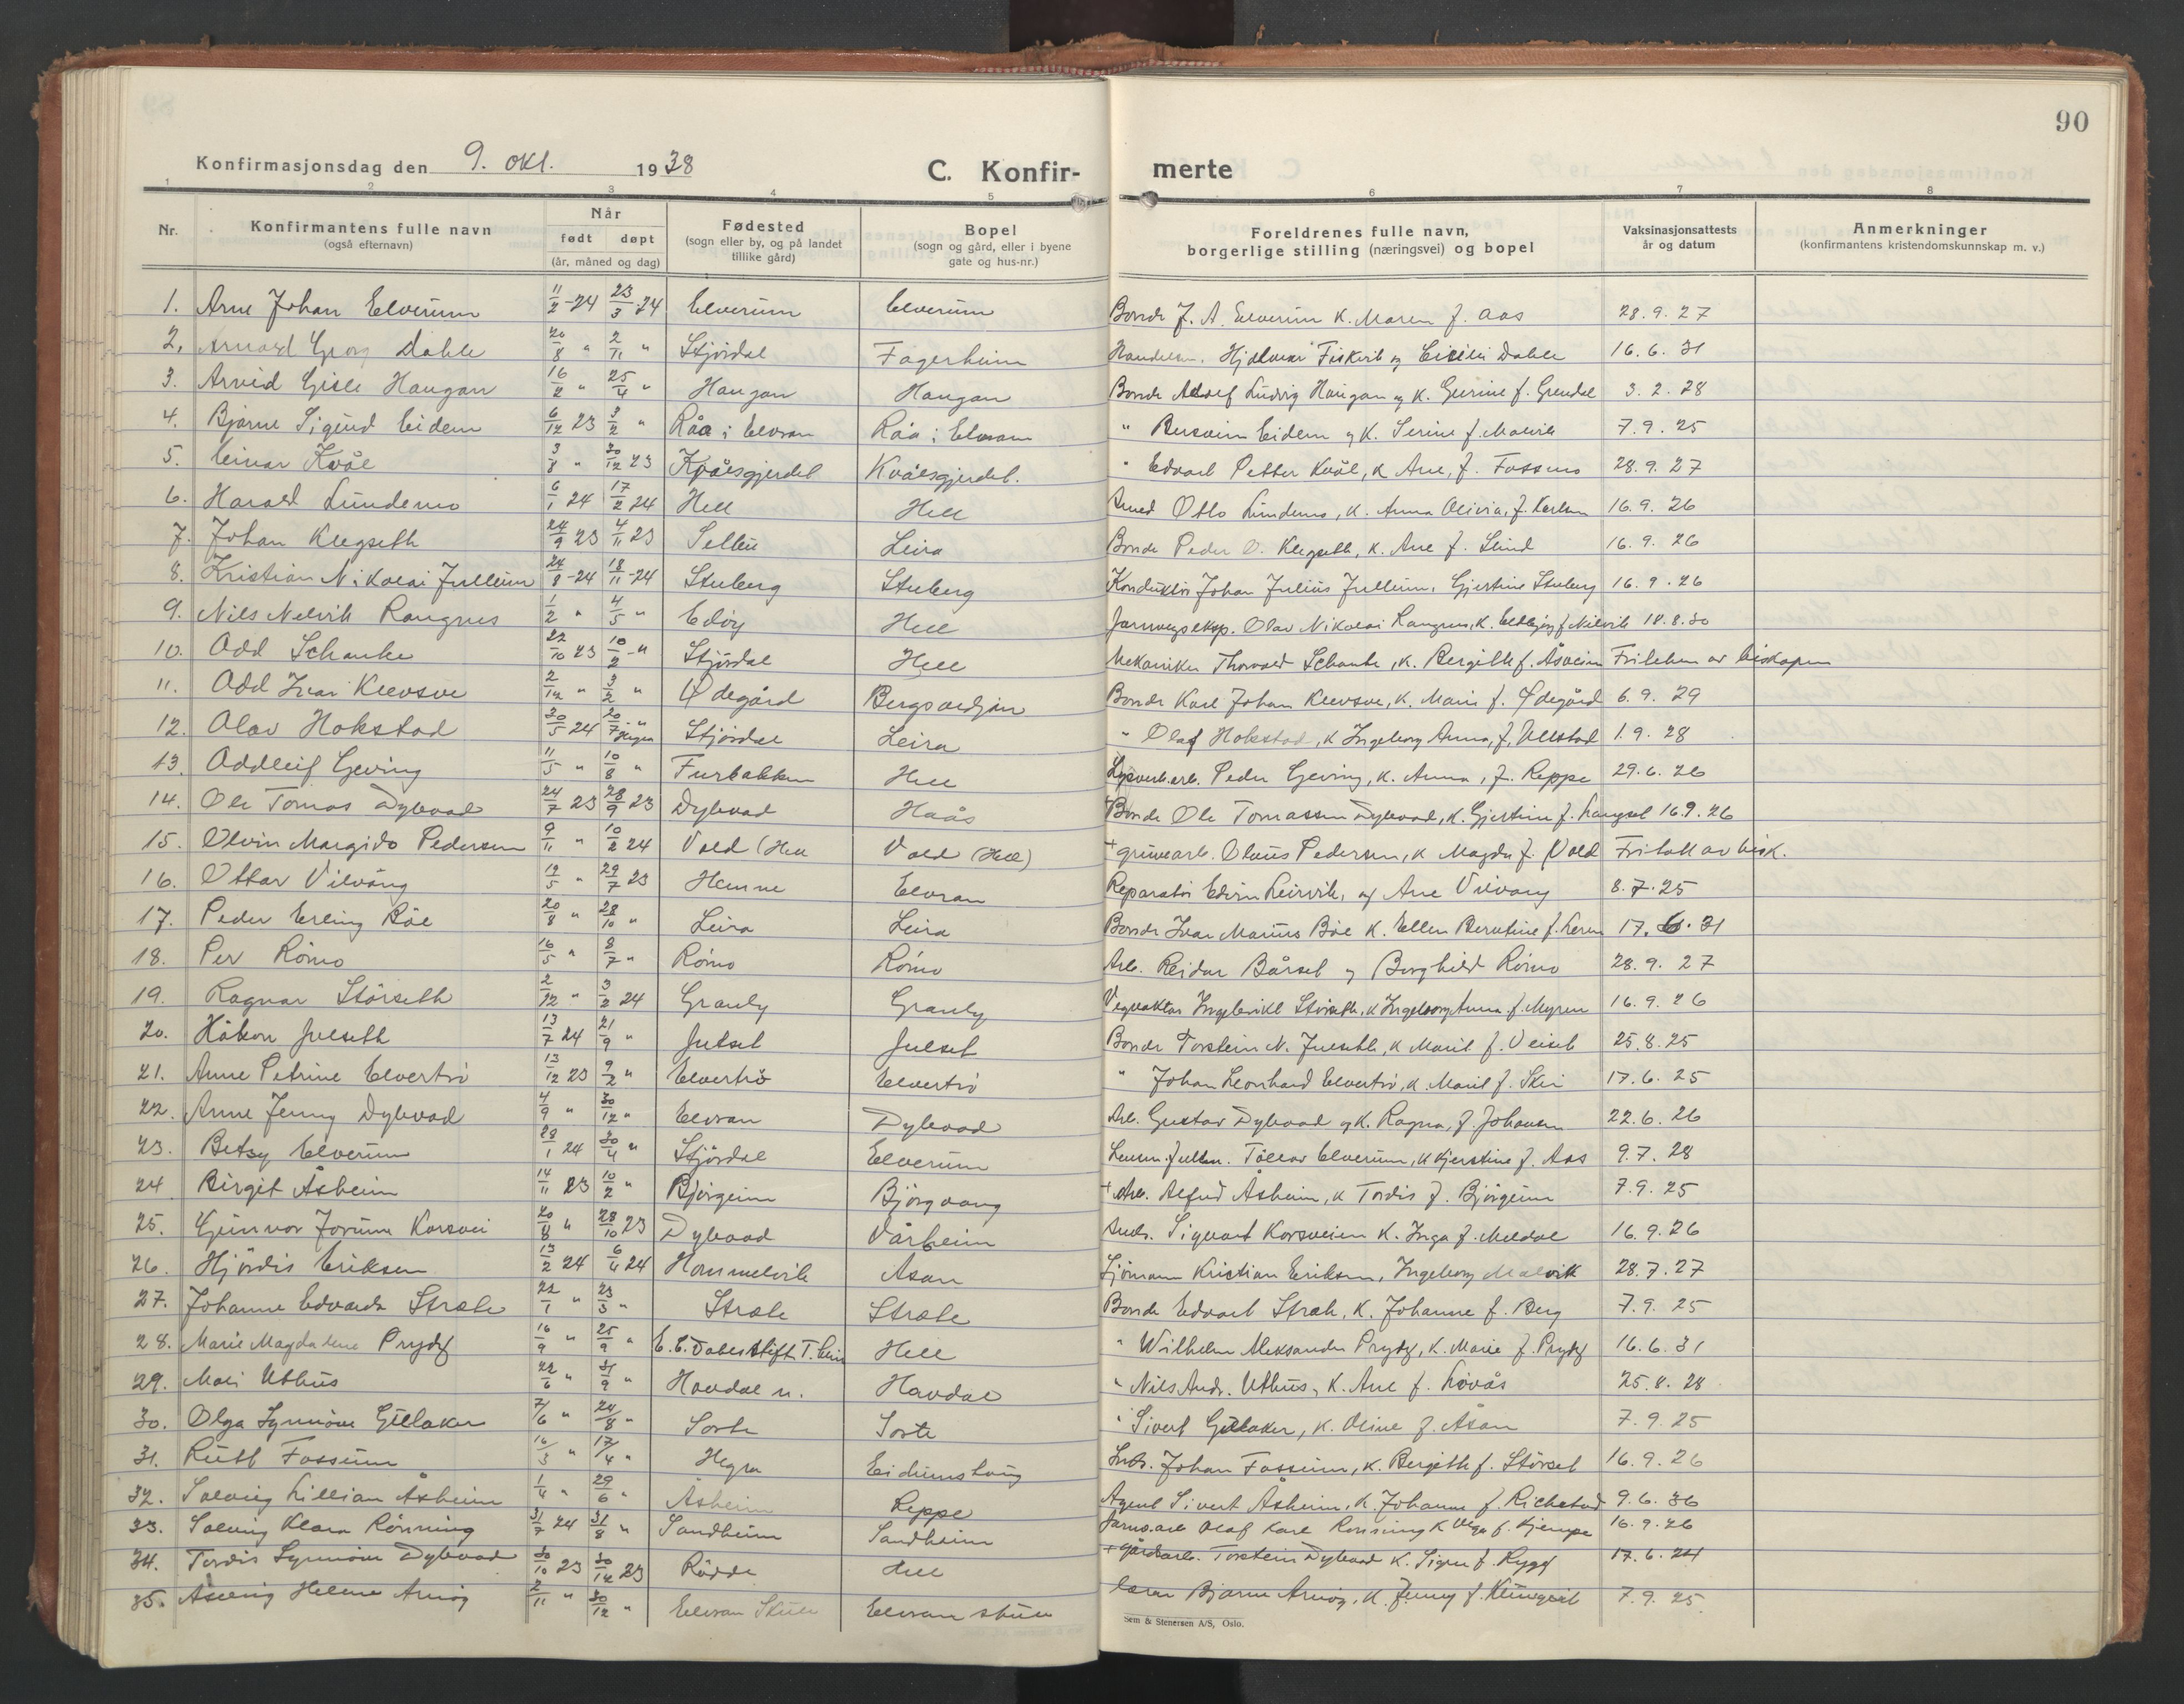 90
Konfirmasjonsdag den 9. okt. 1938 C. Konfir- merte
1 2 3 4 5 6 7 8
Nr. Konfirmantens fulle navn (også efternavn) Når født døpt (år, måned og dag) Fødested (sogn eller by, og på landet tillike gård) Bopel (sogn og gård, eller i byene gate og hus-nr.) Foreldrenes fulle navn, borgerlige stilling (næringsvei) og bopel Vaksinasjonsattests år og datum Anmerkninger (konfirmantens kristendomskunnskap m. v.)
1. Arne Johan Elverum 11/2-24 23/3-24 Elverum Elverum Bonde J. A. Elverum K. Maren f. Aas 28.9.27
2. Arnold Georg Dahle 20/8 " 2/11 " Stjördal Fagerheim Hjalmar Fiskvik og Dahle 16.6.31
3. Arvid Gisle Haugan 16/2 " 25/4 " Haugan Haugan Bonde Adolf Ludvig Haugan og K. Gurine f. Grendal 3.2.28
4. Bjarne Sigurd Eidem 6/12 23 3/2 " Råa i Elvran Råa i Elvran " Eidem og K. Serine f. Malvik 7.9.25
5. Einar Kvål 3/8 " 30/12 23 Kvålsgjerdet Kvålsgjerdet. " Edvart Petter Kvål, K. Ane, f. Fossmo 28.9.27
6. Harald Lundemo 6/1 24 17/2 24 Hell Hell Smed Otto Lundemo, K. Anna Olivia, f. Karlsen 16.9.26
7. Johan Klegseth 24/9 23 4/11 23 Leira Bonde Peder O. Klegseth, K. Ane f. Slind 16.9.26
8. Kristian Nikolai Jullum 24/8-24 18/11-24 Stuberg Stuberg Konduktör Johan Julius Jullum, Gjertine Stuberg 16.9.26
9. Nils Nelvik Rangnes 1/2 " 4/5 " Edöy Hell Jarnvegseksp. Olav Nikolai Rangnes, K. Eldbjörg f. Nelvik 18.8.30
10. Odd Schanke 22/10 23 10/2-" Stjördal Hell Mekaniker Thorvald Schanke, K. Bergitte f. Åsheim Friteken av biskopen
11. Odd Ivar Klevsve 2/12 " 3/2 " Ødegård Bonde Karl Johan Klevsve, K. Marie f. Ødegård 6.9.29
12. Olav Hokstad 30/5 24 20/7 " Stjördal Leira " Olaf Hokstad, K Ingeborg Anna, f. Ullstad 1.9.28
13. Oddleif Geving 11/5 " 10/8 " Furbakken Hell Lysverk.arb. Peder Geving, K. Anna, f. Reppe 29.6.26
14. Ole Tomas Dybvad 24/7 23 28/9 23 Dybvad Haås + Bonde Ole Tomassen Dybvad, K. Gjertine f. Langset 16.9.26
15. Olvin Margido Pedersen 9/11 " 10/2 24 Vold (Hell Vold (Hell) + gruvearb. Olaus Pedersen, K Magda f. Vold Fritatt av bisk.
16. Ottar Vilvang 19/5 " 29/7 23 Hemne Elvran Reparatör Edvin Leirvik, og Ane Vilvang 8.7.25
17. Peder Erling Böe 20/8 " 28/10 " Leira Leira Bonde Ivar Marius Böe K. Ellen Berntine f. Leren 17.6.31
18. Per Römo 16/5 " 8/7 " Römo Römo Arb. Reidar Bårset og Borghild Römo 28.9.27
19. Ragnar Störseth 2/12 " 3/2 24 Granly Granly Vegvaktar Ingebrikt Störseth, K Ingeborg Anna f. Myren 16.9.26
20. Håkon Julseth 13/7 24 21/9 " Julset Julset Bonde Torstein N. Julseth, K Marit f. Veiset 25.8.25
21. Anne Petrine Elvertrö 13/12 23 9/2 " Elvertrö Elvertrö " Johan Leonhard Elvertrö, K. Marit f. Skei 17.6.25
22. Anne Jenny Dybvad 4/9 " 30/12 " Elvran Dybvad Arb. Gustav Dybvad og K. Ragna, f. Johansen 22.6.26
23. Betsy Elverum 28/1 24 20/4 " Stjördal Elverum Tollev Elverum, K Kjerstine f. Aas 9.7.28
24 Birgit Åsheim 14/11 23 10/2 " Björgeim Björgvang + Arb. Alfred Åsheim, K Tordis f. Björgeim 7.9.25
25. Gunnvor Jorunn Korsvei 20/8 " 28/10 23 Dybvad Vårheim Sigvart Korsveien K. Inga f. Meldal 16.9.26
26. Hjördis Eriksen 13/2 24 6/4 24 Hommelvik Åsan Sjömann Kristian Eriksen, Ingeborg Malvik 28.7.27
27. Johanne Edvarda Stræte 22/1 " 23/3 " Stræte Stræte Bonde Edvart Stræte, K. Johanne f. Berg 7.9.25
28. Marie Magdalene Prydz 16/9 " 25/9 " E. C. Dahls Stift. T.heim Hell " Wilhelm Aleksander Prydz, K. Marie f. Prydz 16.6.31
29. Mari Uthus 22/6 " 21/9 " Havdal n. Havdal " Nils Andr. Uthus, K. Ane f. Lövås 25.8.28
30. Olga Synnöve Gullaker 7/6 " 24/8 " Sorte Sorte " Sivert Gullaker, K. Oline f. Åsan 7.9.25
31. Ruth Fossum 16/3 " 17/4 " Hegra Eidumshaug Johan Fossum, K. Bergitte f. Störset 16.9.26
32. Solveig Lillian Åsheim 1/4 " 29/6 " Åsheim Reppe Agent Sivert Åsheim, K. Johanne f. Richstad 9.6.36
33. Solveig Klara Rönning 31/7 24 31/8 " Sandheim Sandheim Jarnv.arb Olaf Karl Rönning K Olga f. Kjempe 16.9.26
34. Tordis Synnöve Dybvad 30/10 23 30/12 23 Rödde Hell + gårdsarb. Torstein Dybvad K. Signe f. Rygg 17.6.24
35. Aslaug Helene Arnöy 2/11 " 30/12 " Elvran Skule Elvran skule Lærer Bjarne Arnöy, K. Jenny f. 7.9.25
Sem & Stenersen A/S, Oslo.